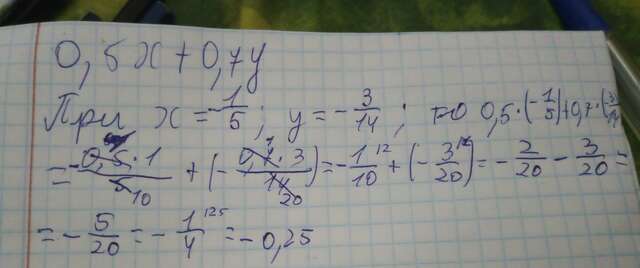 0,5x+0,7y
При x=-1/5; y=-3/14; то 0,5·(-1/5)+0,7·(-3/14
=-0,5·1/10+(-0,7·3/20)=-1/10+(-3/20)=-2/20-3/20=
=-5/20=-1/4=-0,25